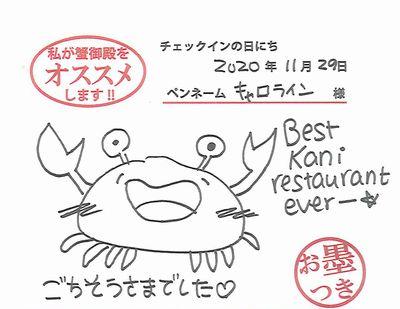 私が蟹御殿を
オススメ
します!!
チェックインの日にち
2020年11月29日
ペンネーム キャロライン 様
Best
Kani
restaurant
ever—☆
ごちそうさまでした♡
お墨
つき